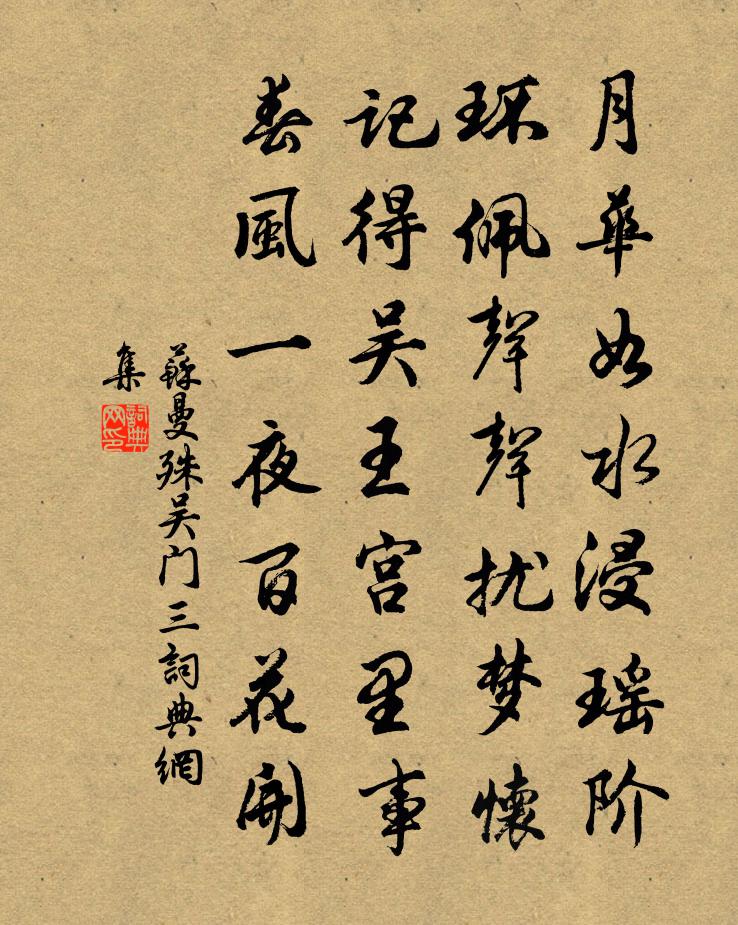 月華如水浸瑶阶
环佩聲聲扰梦懷
记得吴王宫里事
春風一夜百花開
蘇曼殊吴门三詞典網
集
詞典
网印